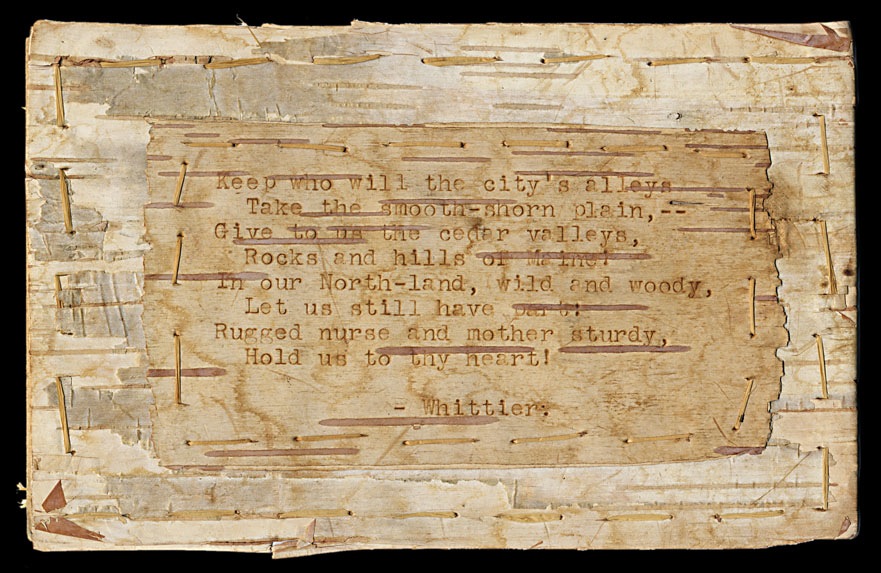 Keep who will the city's alleys
Take the smooth-shorn plain,--
Give to us the cedar valleys,
Rocks and hills of Maine!
In our North-land, wild and woody,
Let us still have part!
Rugged nurse and mother sturdy,
Hold us to thy heart!
- Whittier.